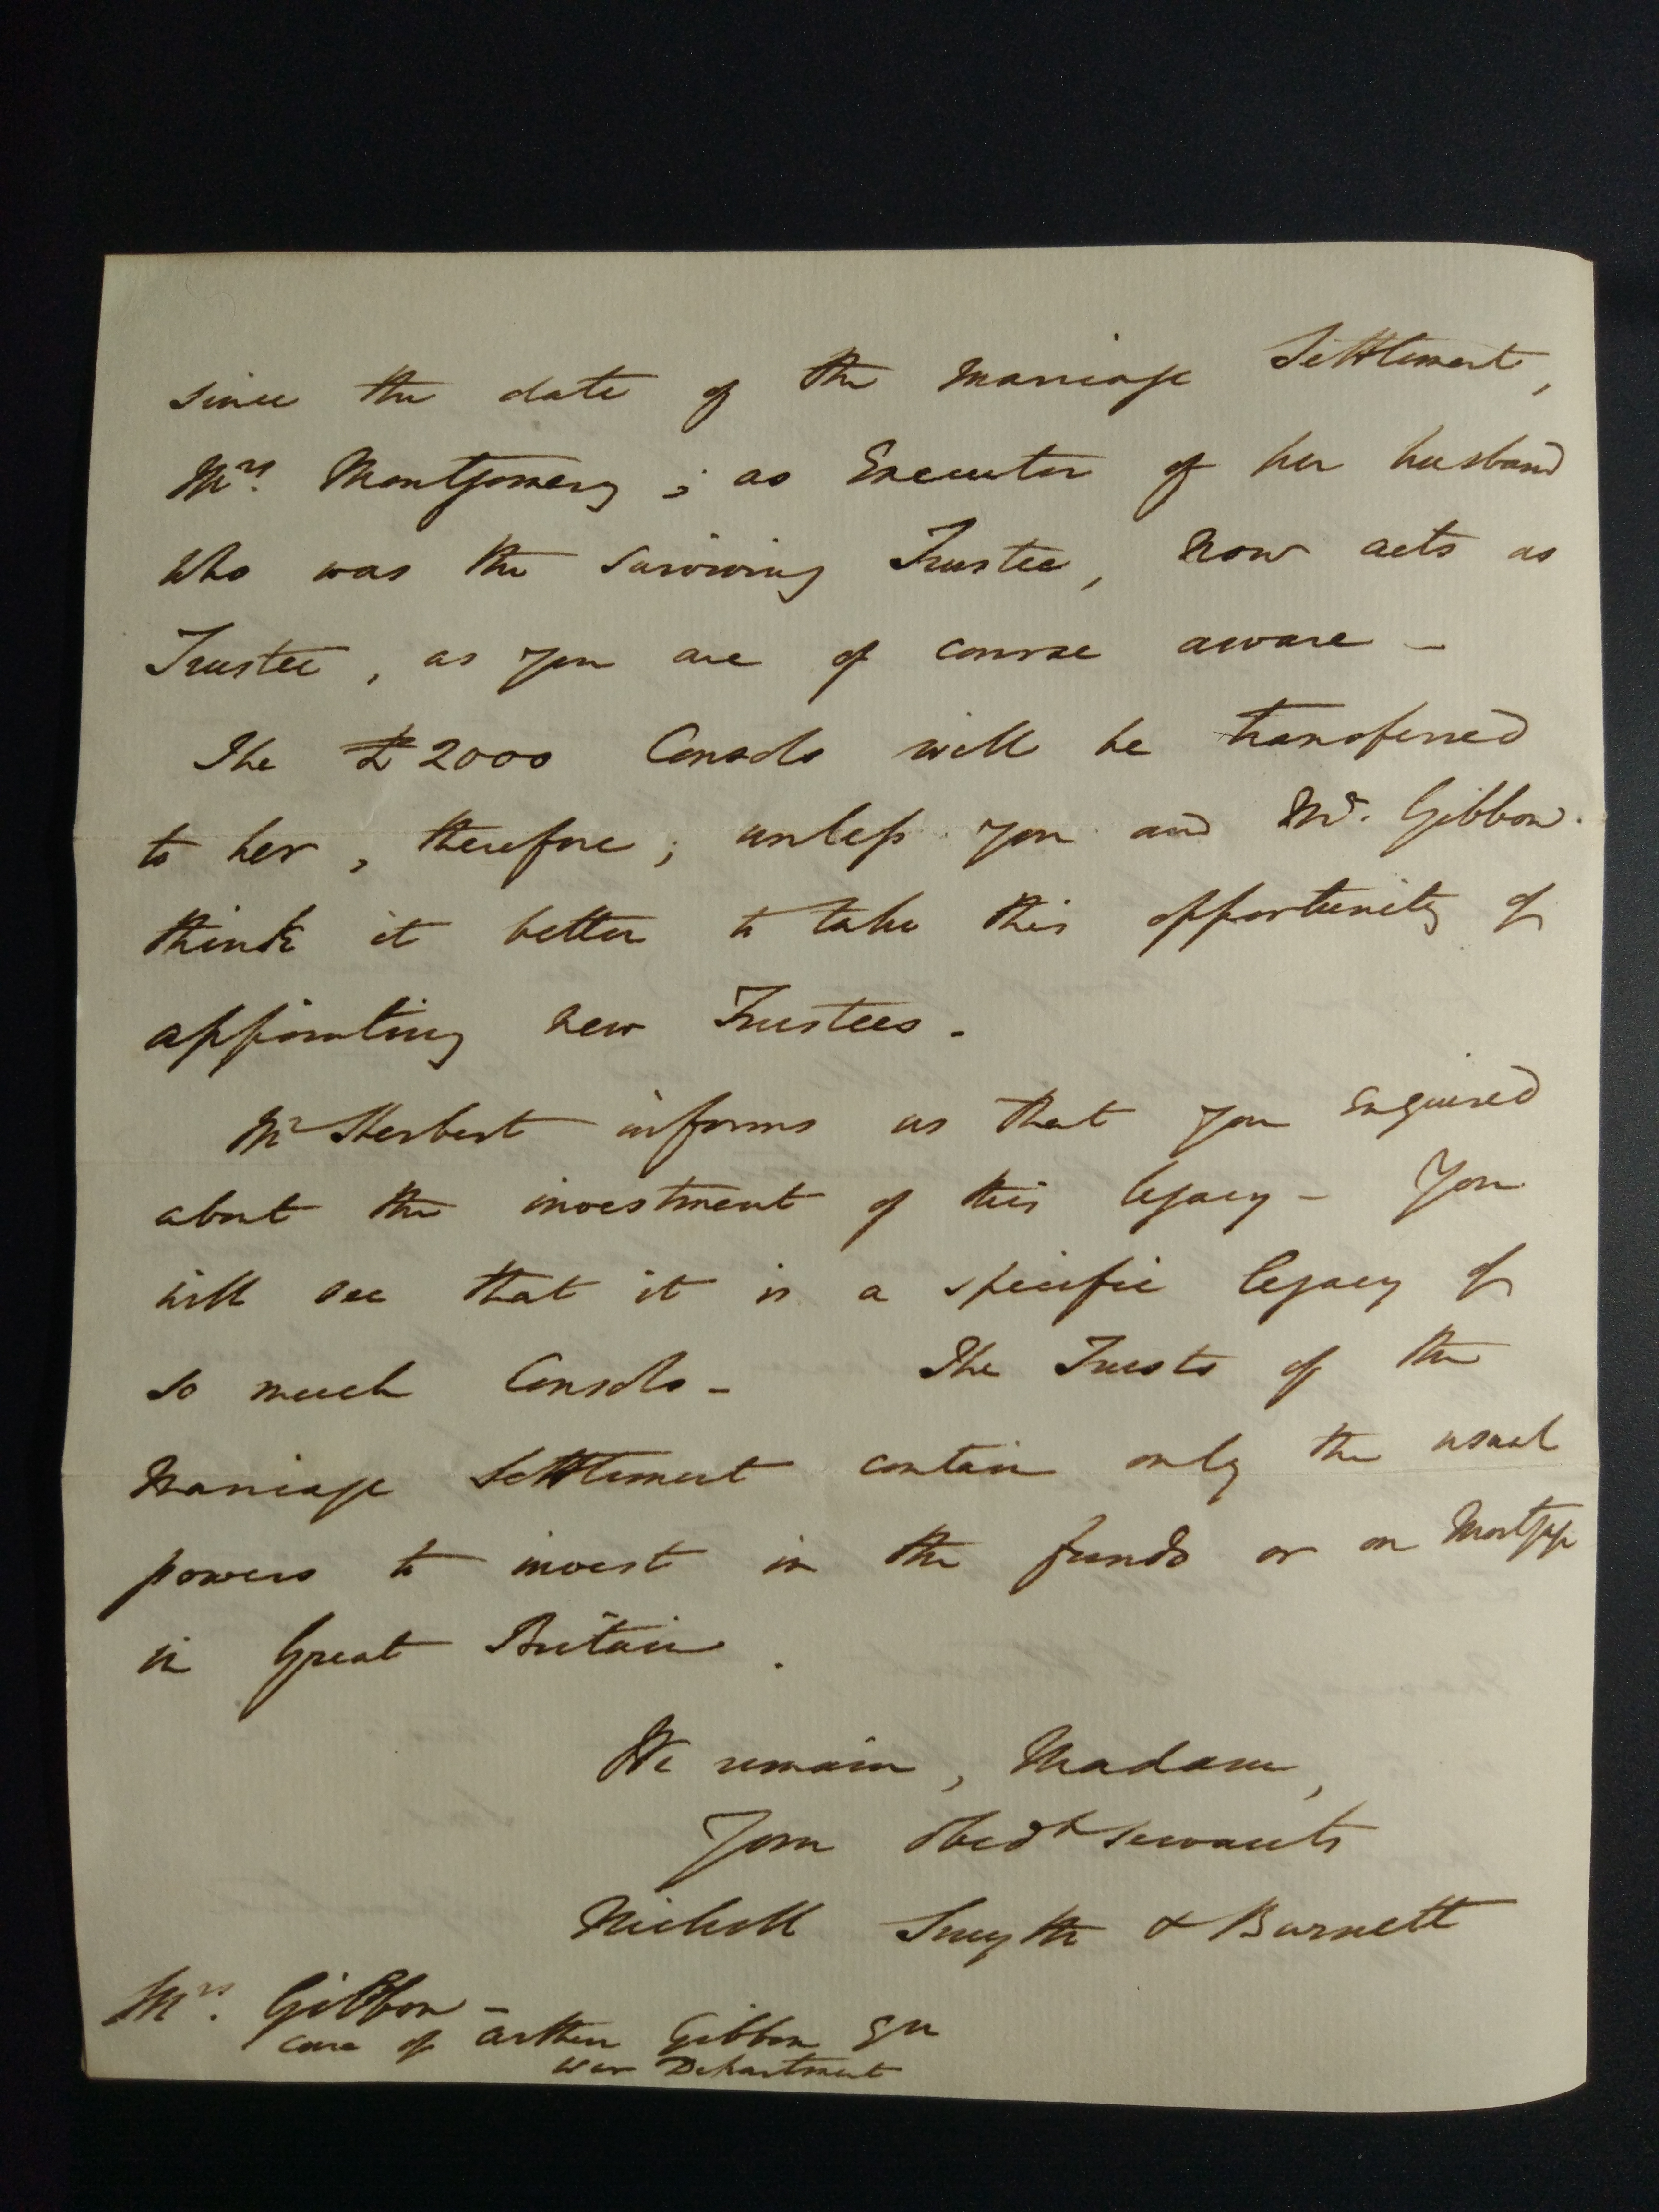 since the date of the Marriage Settlement,
Mrs. Montgomery; as Executor of her husband
who was the surviving Trustee, now acts as
Trustee, as you are of course aware -
The £2000 Consols will be transferred
to her, therefore; unless you and Mr. Gibbon.
think it better to take this opportunity of
appointing new Trustees.
Mr Herbert informs us that you enquired
about the investment of this legacy - You
will see that it is a specific legacy of
so much Consols - The Trusts of the
Marriage Settlement contain only the usual
powers to invest in the funds or on Mortgage
in Great Britain.
We remain, Madam,
Your obedt servants
Nicholl Smyth & Burnett
Mrs. Gibbon -
care of Arthur Gibbon Esq
War Department